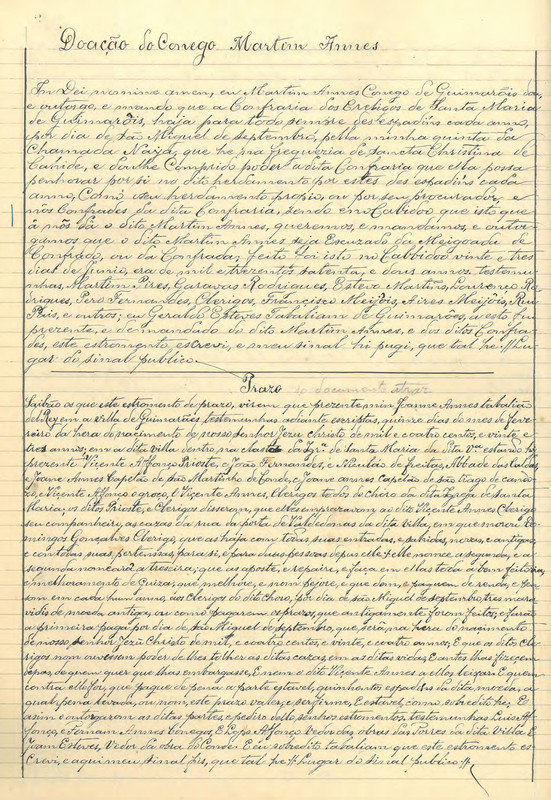 Doação do Conego Martim Annes
In Dei nomine amen, eu Martim Annes Conego de Guimarões dou,
e outorgo, e mando que a Confraria dos Creligos de Santa Maria
de Guimarõis, haja para todo sempre des espadins cada anno,
por dia de São Miguel de septembro, pella minha quinta da
Chamada Naija, que he na freguezia de Sancta Christina de
Cahide, e doulhe Comprido poder a dita Confraria que ella possa
penhorar por si no dito herdamento por estes des espadins cada
anno, Como seu herdamento propio, ou por seu procurador, e
nós Confrades da dita Confraria, sendo em Cabidoo que isto que
á nós dá o dito Martim Annes, queremos, e mandamos, e outor-
gamos que o dito Martim Annes seja Escuzado da Meigoada de
Confrado, ou da Confrada; feito foi isto no Cabbidoo vinte e tres
dias de Junio, era de mil e trezentos satenta, e dous annos. testemu-
nhas, Martim Pires, Garavas Rodrigues, Esteve Martins, Lourenço Ro-
drigues, Pero Fernandes, Clerigos, Francisco Meijõis, Aires Meijõis, Rui
Pais, e outros; eu Geraldo Esteves Tabaliam de Guimarões, a esto fui
prezente, e de mandado do dito Martim Annes, e dos ditos Confra-
des, este estromento escrevi, e meu sinal hi pugi, que tal he // Lu-
gar do sinal publico.
Prazo
so document atraz
Saibão os que este estromento de prazo, virem que prezente mim Joanne Annes tabalião
del Rey em a villa de Guimarães, testemunhas adiante escriptas, quinze dias do mes de Feve-
reiro da hera do nacimento de nosso senhor Jezu Christo de mil e coatro centos, e vinte e
tres annos, em a dita villa dentro na Claste da Igr.ª de Santa Maria da dita V.ª estando hi
prezente Vicente Affonço Trieste, e João Fernandes, e Nicolão de Freitas, Abbade das Caldas,
e Joane Annes Capelão de São Martinho de Conde, e Joane annes Capelão de São tiago de cando-
zo, e Vicente Affonço o groço, e Vicente Annes, Clerigos todos do Choro da dita Igreja de Santa
Maria; os ditos Trioste, e Clerigos disserom, que elles emprazavam ao dito Vicente Annes Clerigo
seu companheiro, as cazas da rua da porta de Val de donas da dita Villa, em que morou Do-
mingos Gonçalves Clerigo, que as haja com todas suas entradas, e sahidas, novas, e antigas,
e com todas suas pertensas, para si, e para duas pessoas depus elle, elle nomee a segunda, e a
segunda nomeará a treseira; que as aposte, e repaire, e faça em ellas toda a bem feitoria,
e melhoramento de Guiza, que melhore, e nom pejore, e que dem, e paguem de renda, e Ses-
som em cada hum anno, aos Clerigos do dito Choro, por dia de São Miguel de septembro, tres mara-
vidis de moeda antiga, ou como pagarem os prazos, que antigamente forem feitos; e fará
a primeira paga por dia de São Miguel de septembro, que será na hera do nacimento
de nosso Senhor Jezu Christo de mil e coatro centos, e vinte, e coatro annos; E que os ditos Cle-
rigos nom ouvessem poder de lhes tolher as ditas cazas, em as ditas vidas, E antes lhas fizeçem
boas, de quem quer que lhas embargasse, E nem o dito Vicente Annes a elles leixar. E quem
contra elle for, que pague de pena a parte estavel, quinhentos espadins da dita moeda, a
qual, pena levada, ou nom, este prazo valer, e ser firme, E estavel, como sobredito he. E
asim o outorgaram as ditas partes, e pediro dello senhos estromentos, testemunhas Luis Af-
fonço, e Fernam Annes Conegos, E Lopo Affonço Vedor das obras das Torres da dita Villa E
Joam Esteves, Vedor da obra de Conde. E eu sobredito tabaliam que este estromento es-
Crevi, e aqui meu sinal fis, que tal he // Lugar do sinal publico //